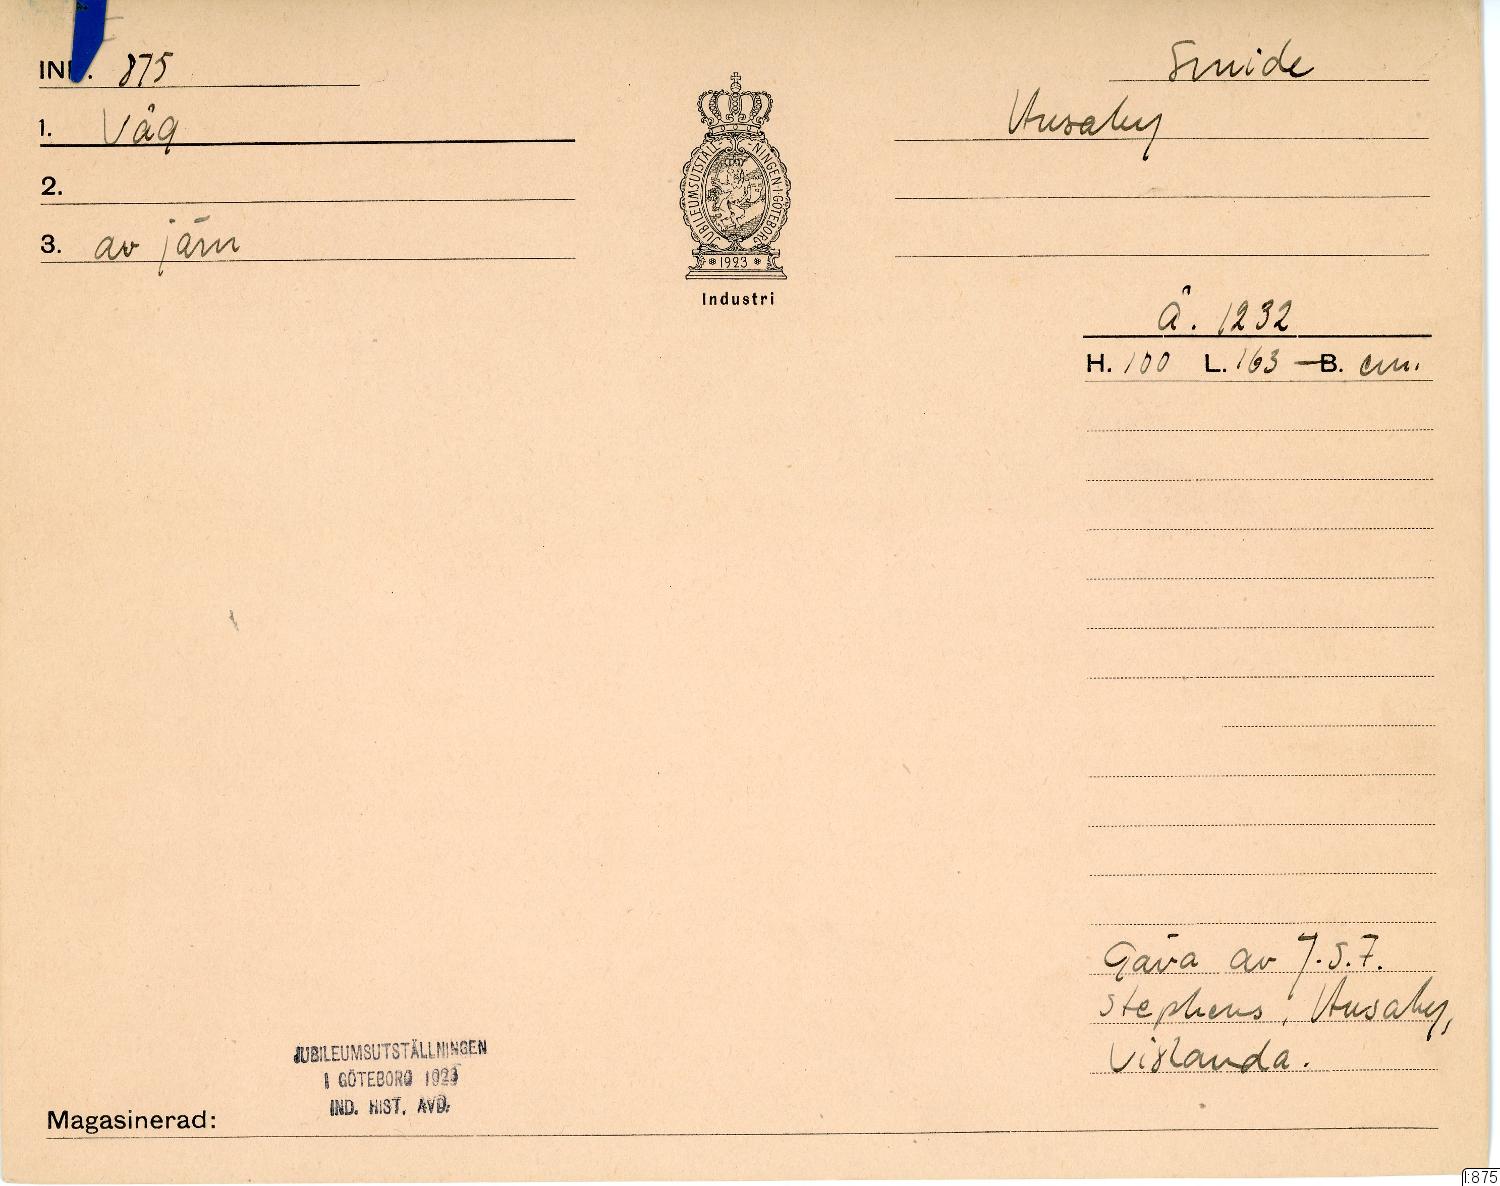 INF. 875
Smide
1. Våg
Husaby
2.
3. av järn
JUBILEUMSUTSTÄLLNINGEN I GÖTEBORG
* 1923 *
Industri
Å. 1232
H. 100 L. 163 B. cm.
Gåva av J.S.F.
Stephens, Husaby,
Vislanda.
JUBILEUMSUTSTÄLLNINGEN
I GÖTEBORG 1923
IND. HIST. AVD.
Magasinerad:
I:875